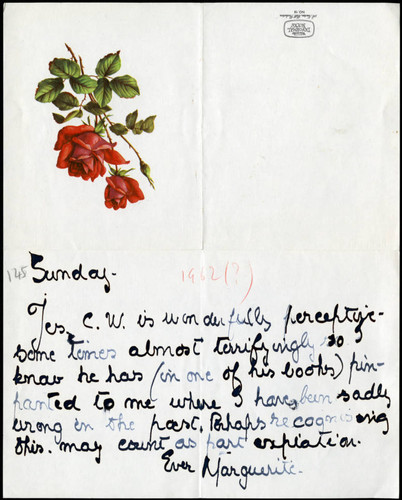 145 Sunday - 1962 (?)
Yes, C. W. is wonderfully perceptive -
some times almost terrifyingly so I
know he has (in one of his books) pin-
pointed to me where I have been sadly
wrong in the past. Perhaps recognising
this. may count as part expiation.
Ever Marguerite.